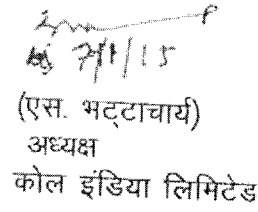 7/1/15
(एस. भट्टाचार्य)
अध्यक्ष
कोल इंडिया लिमिटेड